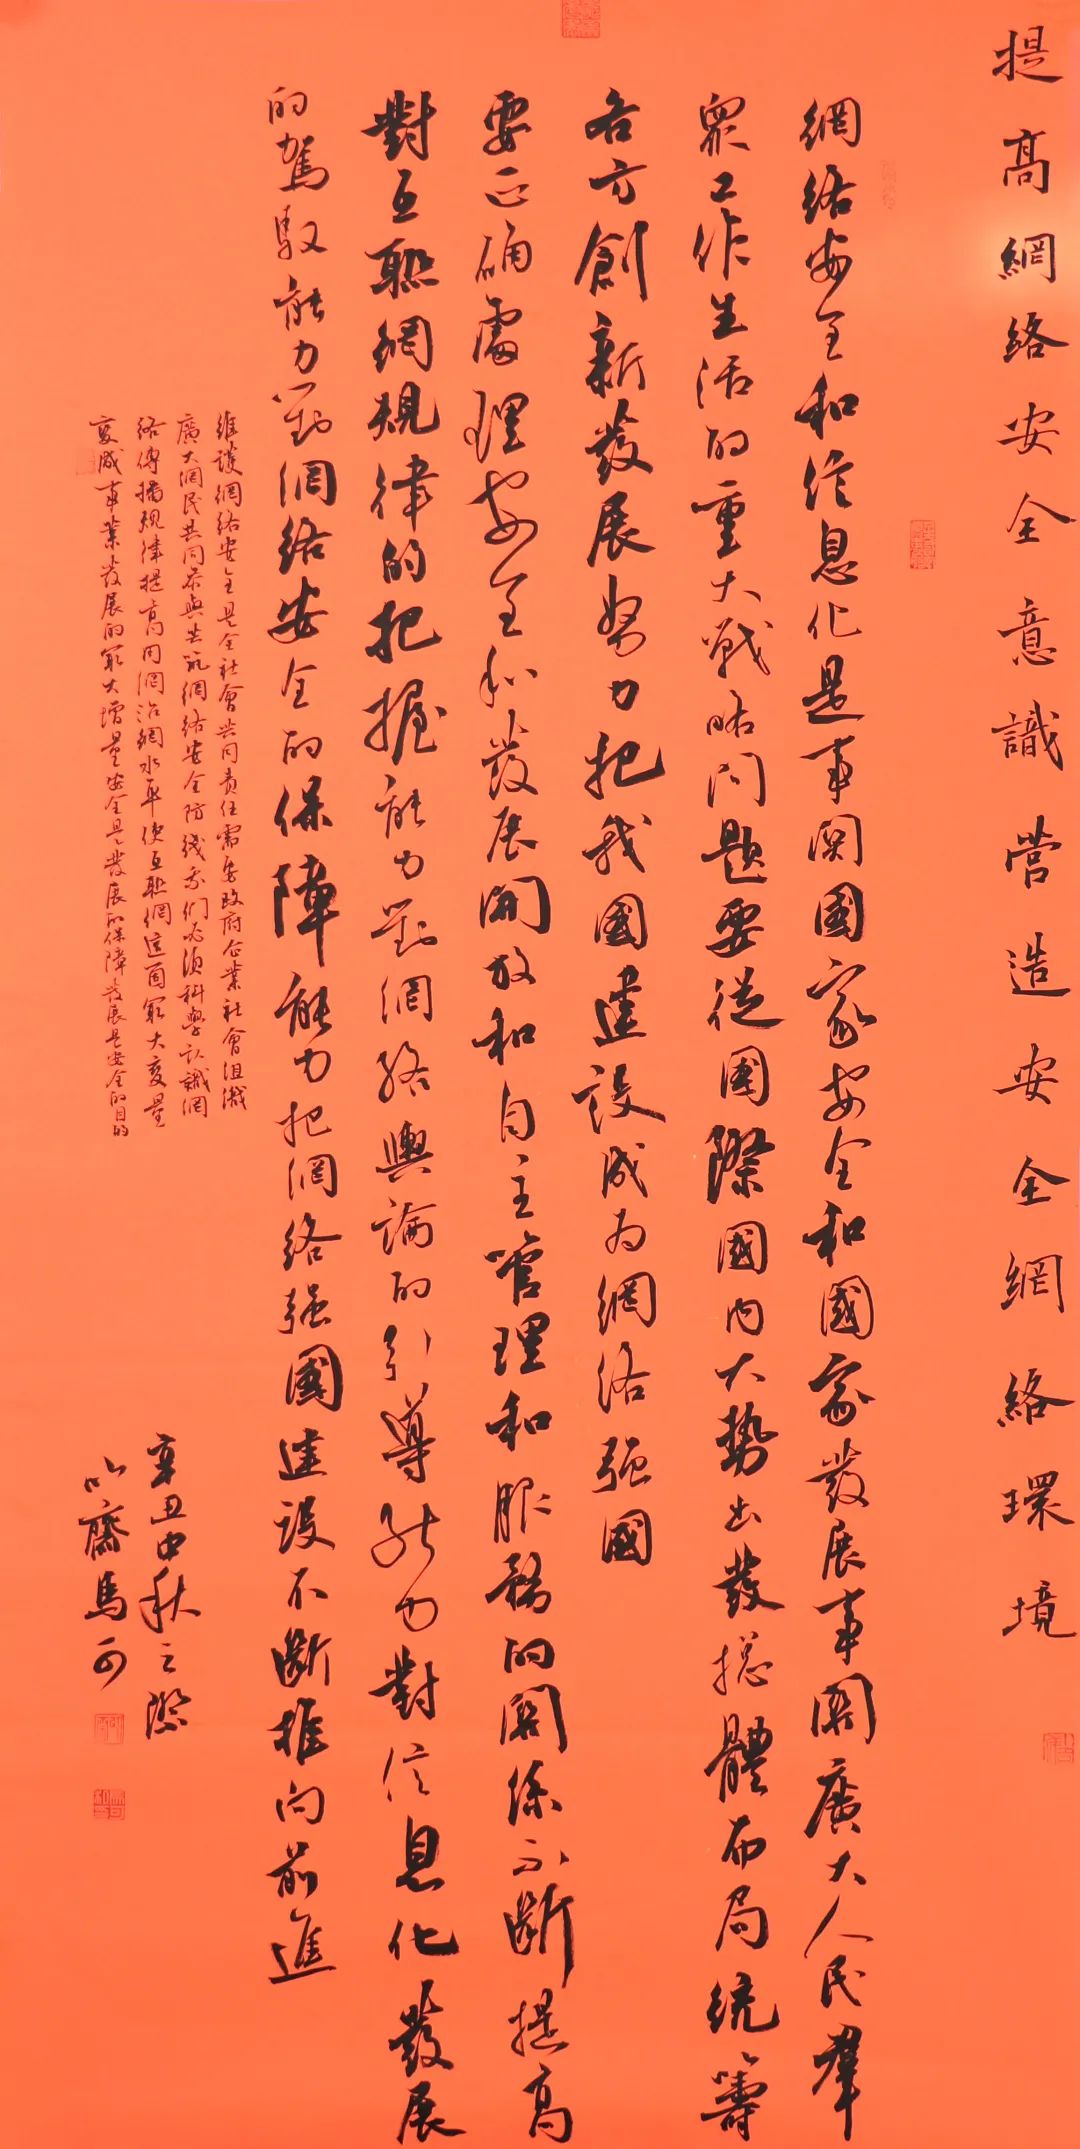 提高網絡安全意識營造安全網絡環境
網絡安全和信息化是事関國家安全和國家發展事關廣大人民羣
眾工作生活的重大戰略问題要從國際國内大勢出發總體布局统籌
各方創新發展努力把我國建设成为網络强國
要正确處理安全和發展開放和自主管理和服務的關係不斷提高
對互聯網規律的把握能力對網絡輿論的引導能力對信息化發展
的駕馭能力對網络安全的保障能力把網络强國建设不斷推向前進
維護網络安全是全社會共同责任需要政府企業社會组織
廣大網民共同參與共筑網络安全防线我们必须科學认識網
络傳播规律提高用網治網水平使互聯網這個最大变量
变成事業發展的最大增量安全是發展的保障發展是安全的目的
辛丑中秋之際
齋馬可